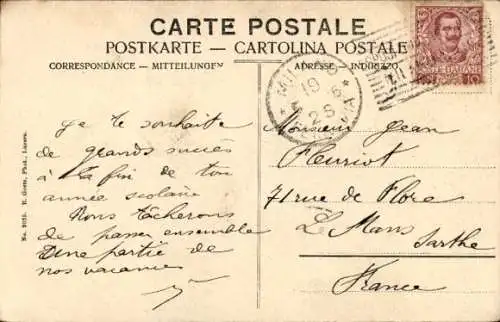 CARTE POSTALE
POSTKARTE — CARTOLINA POSTALE
CORRESPONDANCE — MITTEILUNGEN
ADRESSE — INDIRIZZO
POSTE ITALIANE
19
No. 9225. E. Goetz, Phot., Luzern.
Je te souhaite
de grands succès
à la fin de ton
année scolaire
Nous tâcherons
de passer ensemble
Une partie de
nos vacances
Monsieur Jean
Fleuriot
71 rue de Flore
Le Mans
Sarthe
France